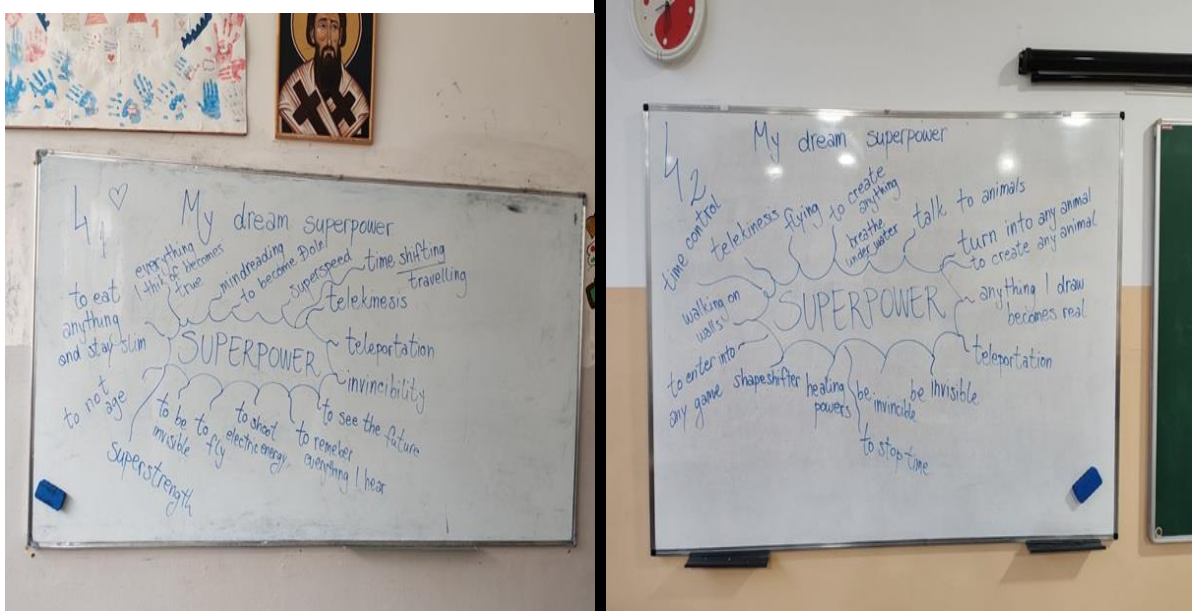 4₁ ♡
My dream superpower
everything
I think of becomes
true
mindreading
to become Doln
superspeed
time shifting
travelling
telekinesis
teleportation
invincibility
to see the future
to remeber
everything I hear
to shoot
electric energy
to fly
to be
invisible
superstrength
to not
age
to eat
anything
and stay slim
SUPERPOWER
4₂
My dream superpower
time control
telekinesis
flying
to create
anything
breathe
under water
talk to animals
turn into any animal
to create any animal
anything I draw
becomes real
teleportation
be invisible
be
invincible
to stop time
healing
powers
shapeshifter
to enter into
any game
walking on
walls
SUPERPOWER